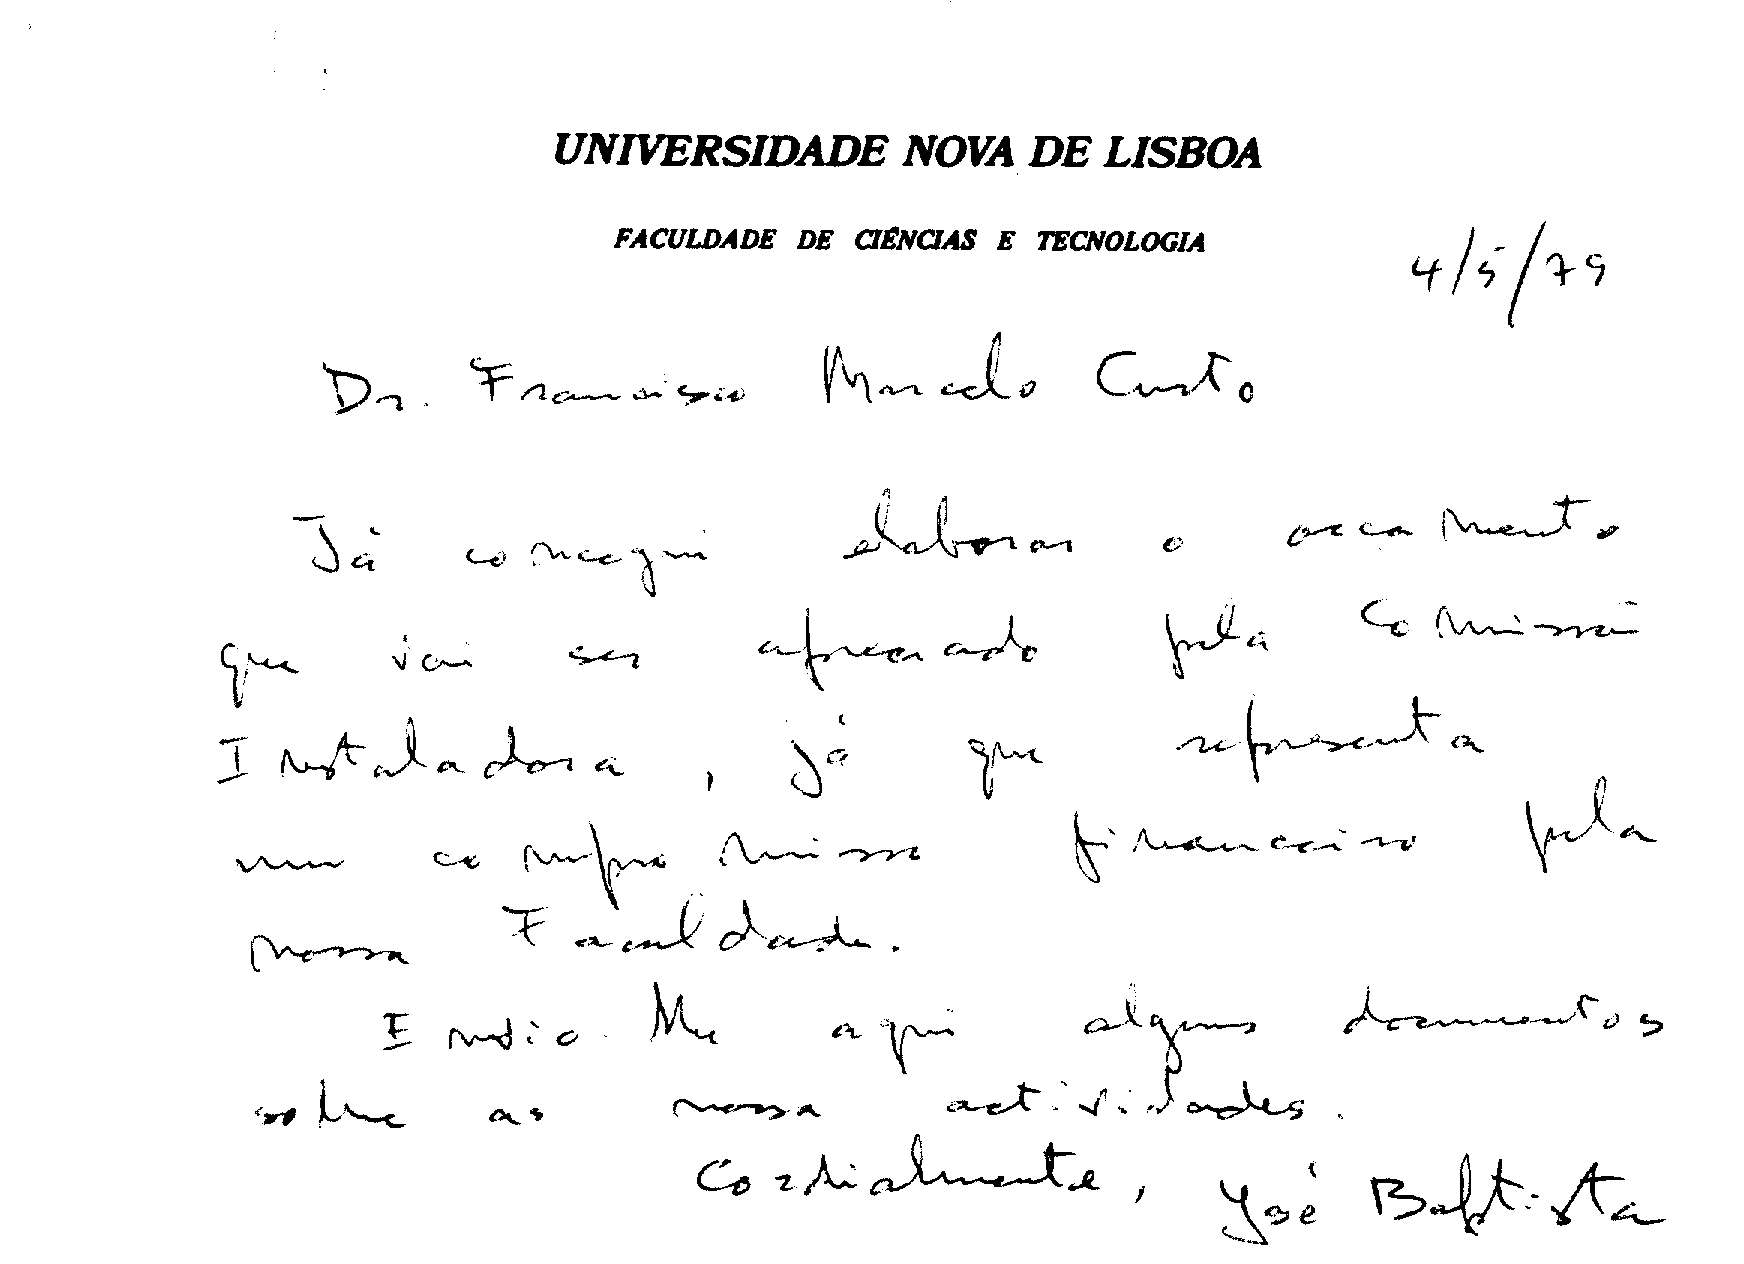 UNIVERSIDADE NOVA DE LISBOA
FACULDADE DE CIÊNCIAS E TECNOLOGIA
4/5/79
Dr. Francisco Marcelo Curto
Já consegui elaborar o orçamento
que vai ser apreciado pela Comissão
Instaladora, já que representa
um compromisso financeiro pela
nossa Faculdade.
Envio-lhe aqui alguns documentos
sobre as nossa actividades.
Cordialmente, José Baptista